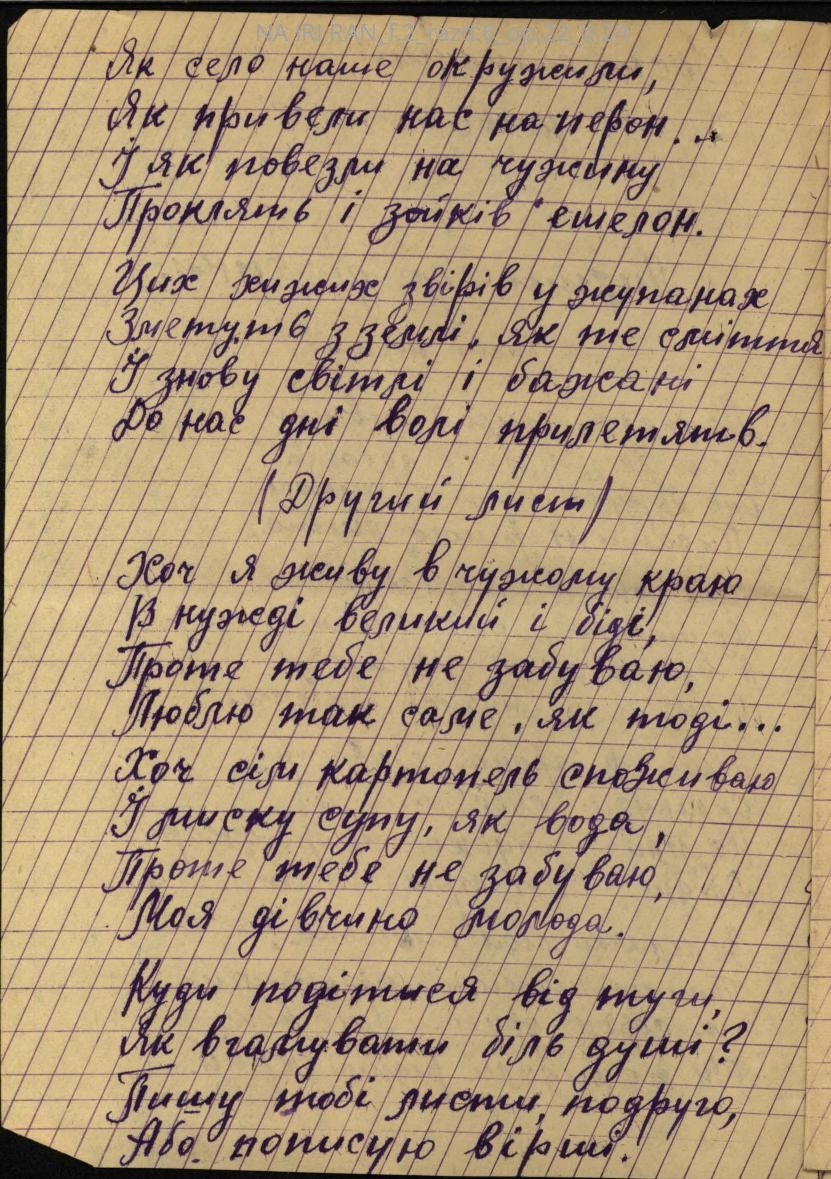 Як село наше окружили,
Як привели нас на перон...
Й як повезли на чужину
Проклять і зойків ешелон.
Цих хижих звірів у жупанах
Зметуть з землі, як те сміття
Й знову світлі і бажані
До нас дні волі прилетять.
(Другий лист)
Хоч я живу в чужому краю
В нужді великий і біді,
Проте тебе не забуваю,
Люблю так саме, як тоді...
Хоч сім картопель споживаю
Й миску супу, як вода,
Проте тебе не забуваю,
Моя дівчино молода.
Куди подітися від туги,
Як вгамувати біль душі?
Пишу тобі листи, подруго,
Або пописую вірші.